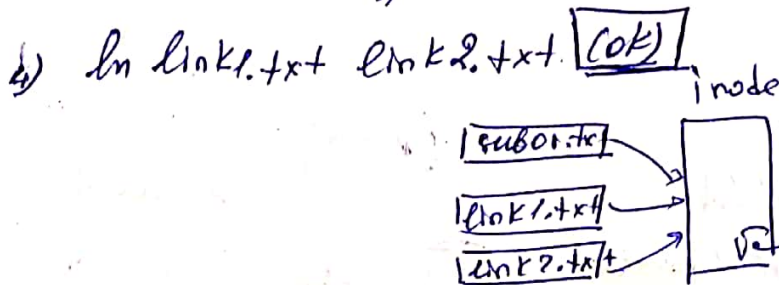 4) ln link1.txt link2.txt (OK)
inode
subor.tx
link1.txt
link2.txt